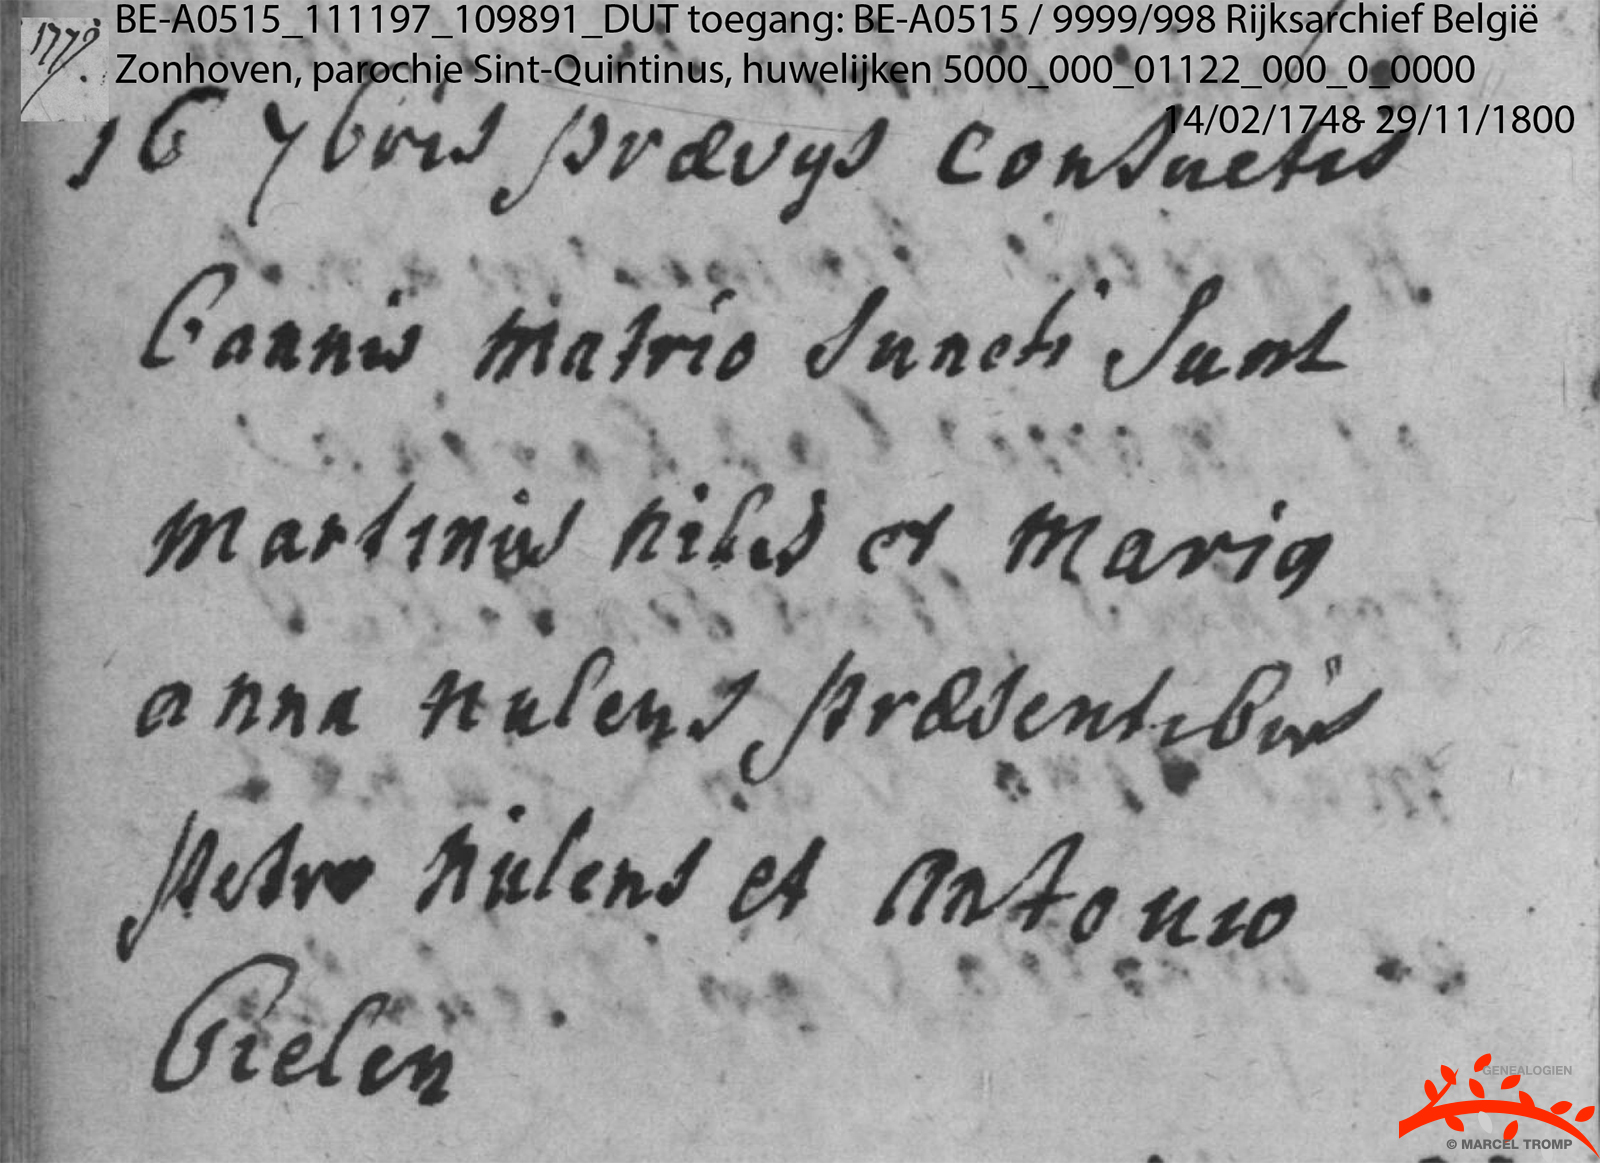 BE-A0515_111197_109891_DUT toegang: BE-A0515 / 9999/998 Rijksarchief België
Zonhoven, parochie Sint-Quintinus, huwelijken 5000_000_01122_000_0_0000
14/02/1748- 29/11/1800
1779
16 7bris prævys consuetis
bannis matrio Juncti Sunt
martinus nilis et maria
anna nulens præsentibus
petro nulens et antonio
Gielen
GENEALOGIEN
© MARCEL TROMP